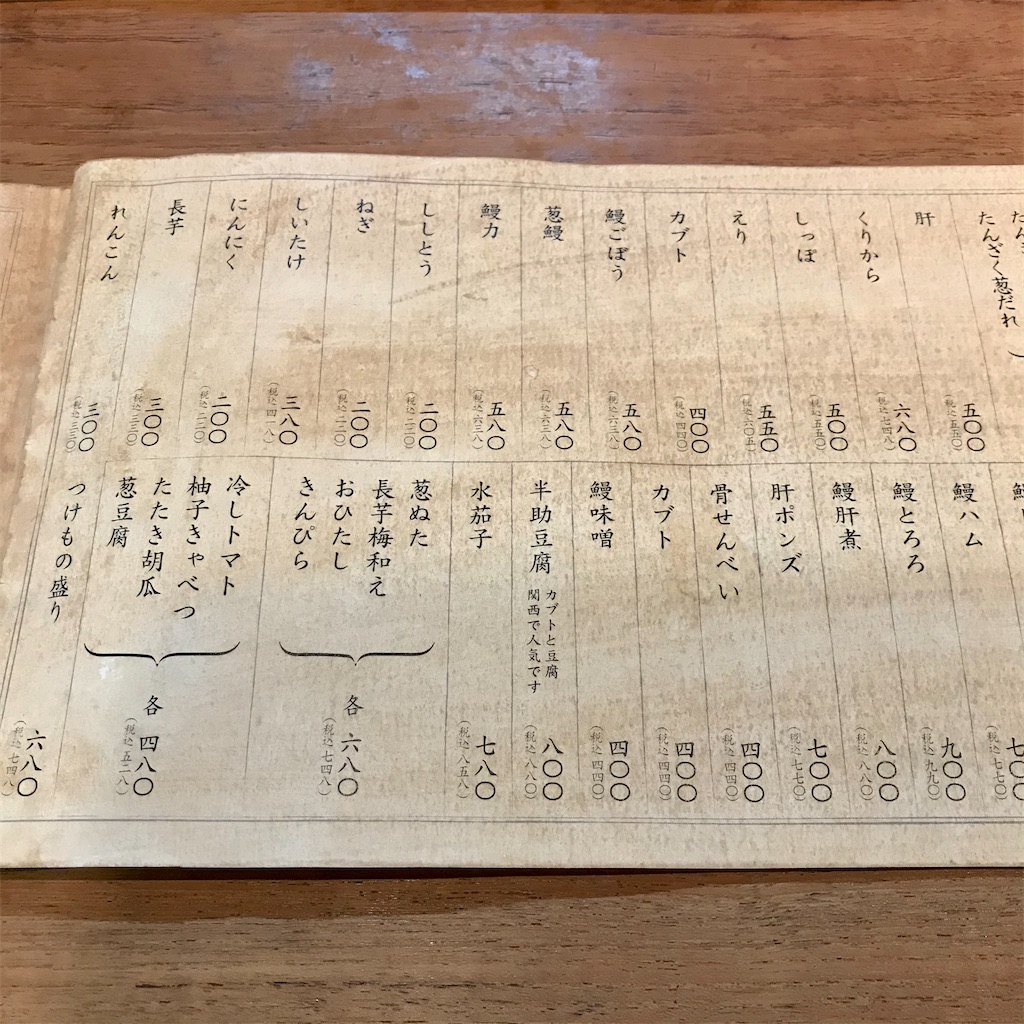 たんざく葱だれ
肝
五〇〇
(税込 五五〇)
くりから
六八〇
(税込 七四八)
しっぽ
五〇〇
(税込 五五〇)
えり
五五〇
(税込 六〇五)
カブト
四〇〇
(税込 四四〇)
鰻ごぼう
五八〇
(税込 六三八)
葱鰻
五八〇
(税込 六三八)
鰻力
五八〇
(税込 六三八)
ししとう
二〇〇
(税込 二二〇)
ねぎ
二〇〇
(税込 二二〇)
しいたけ
三八〇
(税込 四一八)
にんにく
二〇〇
(税込 二二〇)
長芋
三〇〇
(税込 三三〇)
れんこん
三〇〇
(税込 三三〇)
(税込 七七〇)
鰻ハム
九〇〇
(税込 九九〇)
鰻とろろ
八〇〇
(税込 八八〇)
鰻肝煮
七〇〇
(税込 七七〇)
肝ポンズ
四〇〇
(税込 四四〇)
骨せんべい
四〇〇
(税込 四四〇)
カブト
四〇〇
(税込 四四〇)
鰻味噌
八〇〇
(税込 八八〇)
半助豆腐
カブトと豆腐
関西で人気です
七八〇
(税込 八五八)
水茄子
葱ぬた
長芋梅和え
おひたし
きんぴら
各 六八〇
(税込 七四八)
冷しトマト
柚子きゃべつ
たたき胡瓜
葱豆腐
各 四八〇
(税込 五二八)
つけもの盛り
六八〇
(税込 七四八)